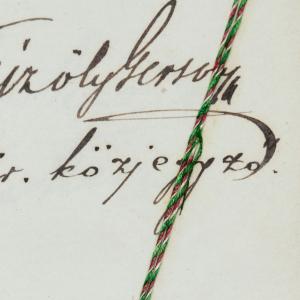 jzöly Gerson
kir. közjegyző.